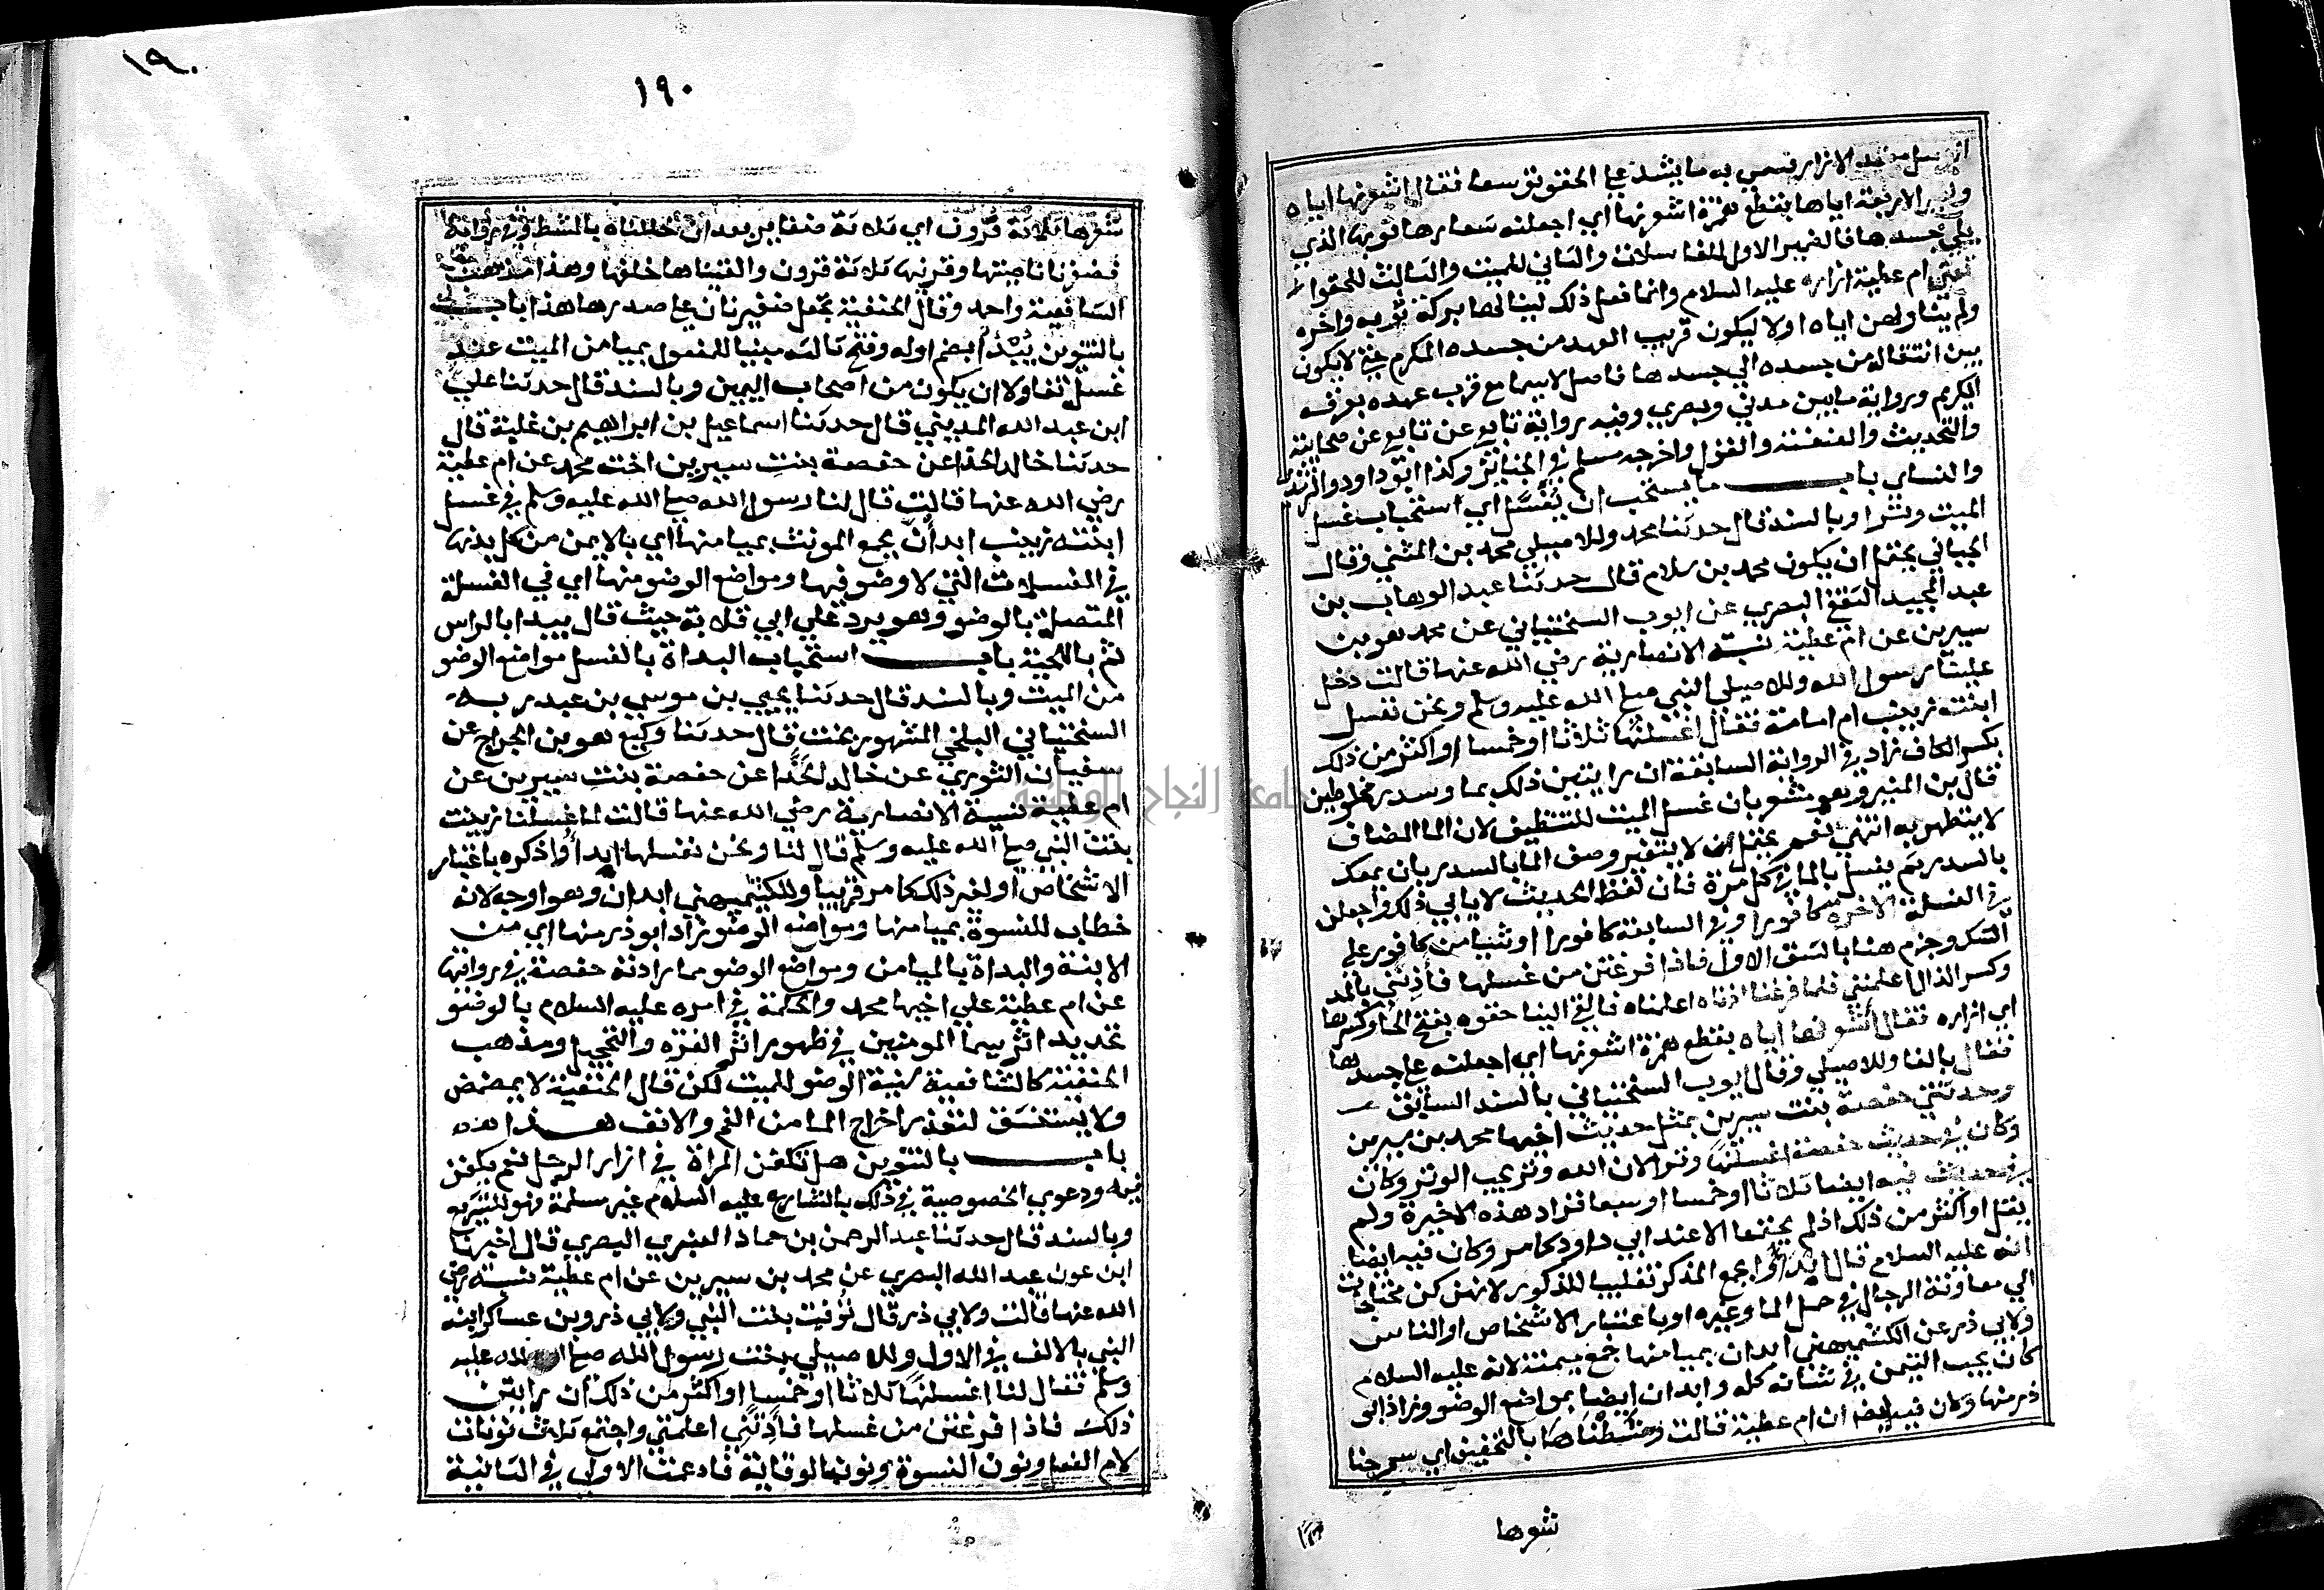 الازار فسمي به ما يشد على الحقو توسعا فقال اشعرنها اياه
ولغير الاربعة اياها بقطع همزة اشعرنها أي اجعلنه شعارها ثوبها الذي
يلي جسدها فالضمير الاول للغاسلات والثاني للميت والثالث للحقو
تعني ام عطية ازاره عليه السلام وانما فعل ذلك لينالها بركة ثوبه واخره
ولم يناولهن اياه اولا ليكون قريب العهد من جسده المكرم حتى لا يكون
بين انتقاله من جسده الي جسدها فاصل لاسيما مع قرب عهده بعرقه
الكريم ورواية مابين مدني وبصري وفيه رواية تابعي عن تابعي عن صحابية
والتحديث والعنعنة والقول واخرجه مسلم في الجنائز وكذا ابوداود والترمذي
والنساي باب ما يستحب ان يُغسَّل أي استحباب غسل
الميت وترا وبالسند قال حدثنا محمد وللاصيلي محمد بن المثني وقال
الجياني يحتمل ان يكون محمد بن سلام قال حدثنا عبد الوهاب بن
عبد المجيد الثقفي البصري عن ايوب السختياني عن محمد هو بن
سيرين عن ام عطية نسيبة الانصارية رضي الله عنها قالت دخل
علينا رسول الله وللاصيلي النبي صلى الله عليه وسلم ونحن نغسل
ابنته زينب ام امامة فقال اغسلنها ثلاثا اوخمسا او اكثر من ذلك
بكسر الكاف زاد في الرواية السابقة ان رايتين ذلك بما وسدر مخلوطين
قال بن المنير وهو مشعر بان غسل الميت للتنظيف لان الما المضاف
لا يتطهر به انتهي نعم يحتمل ان لا يتغير وصف الما بالسدر بان يمعك
بالسدر ثم يغسل بالما في كل مرة فان لفظ الحديث لا يابي ذلك واجعلن
في الغسلة الاخيرة كافورا وفي السابقة كافورا او شيا من كافور على
الشك وجزم هنا بالشق الاول فاذا فرغتن من غسلها فآذنني بالمد
وكسر الذال اعلمنني فلما فرغنا اذناه اعلمناه فالقي الينا حقوه بفتح الحا وكسرها
اي ازاره فقال اشعرنها اياه بقطع همزة اشعرنها اي اجعلنه على جسدها
فقال بالفا وللاصيلي وقال ايوب السختياني بالسند السابق
وحدثتني حفصة بنت سيرين بمثل حديث اخيها محمد بن سيرين
وكان في حديث حفصة اغسلنها وترا لان الله وتر يحب الوتر وكان
في حديث فيه ايضا ثلاثا اوخمسا او سبعا فزاد هذه الاخيرة ولم
يقل او اكثر من ذلك اذ لم يجتمعا الا عند ابي داود كما مر وكان فيه ايضا
انه عليه السلام قال ابدأوا بجمع المذكر تغليبا للذكور لانهن كن محتاجات
الي معاونة الرجال في حمل الما وغيره او باعتبار الاشخاص او الناس
ولابي ذر عن الكشميهني ابدان بميامنها جمع ميمنة لانه عليه السلام
كان يحب التيمن في شانه كله وابدان ايضا بمواضع الوضو وزاد ابو
ذر منها وكان فيه ايضا ان ام عطية قالت ومَشَطْنَاها بالتخفيف اي سرحنا
شعرها
١٩٠
١٩٠
شعرها ثلاثة قرون اي ثلاثة ضفاير بعد ان خللناه بالمشط وفي رواية
فضفرنا ناصيتها وقرنيها ثلاثة قرون والقيناها خلفها وهذا مذهب
الشافعية واحمد وقال الحنفية يجعل ضفيرتان على صدرها هذا باب
بالتنوين يُبْدَأ بضم اوله وفتح ثالثه مبنيا للمفعول بميامن الميت عند
غسله تفاولا ان يكون من اصحاب اليمين وبالسند قال حدثنا علي
ابن عبد الله المديني قال حدثنا اسماعيل بن ابراهيم بن علية قال
حدثنا خالد الحذا عن حفصة بنت سيرين اخت محمد عن ام عطية
رضي الله عنها قالت قال لنا رسول الله صلى الله عليه وسلم في غسل
ابنته زينب ابدأن بجمع المونث بميامنها اي بالايمن من كل بدنها
في الغسلات التي لا وضو فيها ومواضع الوضو منها اي في الغسلة
المتصلة بالوضو وهو يرد على ابي قلابة حيث قال يبدا بالراس
ثم باللحية باب استحباب البداة بالغسل مواضع الوضو
من الميت وبالسند قال حدثنا يحيي بن موسي بن عبد ربه
السختياني البلخي المشهور بخت قال حدثنا وكيع هو بن الجراح عن
سفيان الثوري عن خالد الحذّا عن حفصة بنت سيرين عن
ام عطية نسيبة الانصارية رضي الله عنها قالت لما غسلنا زينب
بنت النبي صلى الله عليه وسلم قال لنا ونحن نغسلها ابدأوا ذكره باعتبار
الاشخاص او لغير ذلك كما مر قريبا وللكشميهني ابدان وهو اوجه لانه
خطاب للنسوة بميامنها ومواضع الوضو زاد ابو ذر منها اي من
الابنة والبداة بالميامن ومواضع الوضو مما زادته حفصة في روايتها
عن ام عطية علي اخيها محمد والحكمة في امره عليه السلام بالوضو
تجديد اثر سيما المومنين في ظهور اثر الغرة والتحجيل ومذهب
الحنفية كالشافعية سنية الوضو للميت لكن قال الحنفية لا يمضمض
ولا يستنشق لتعذر اخراج الما من الفم والانف هذا
باب بالتنوين هل تكفن المراة في ازار الرجل نعم يكفن
فيه ودعوي الخصوصية في ذلك بالشارع عليه السلام غير مسلمة فهو للتشريع
وبالسند قال حدثنا عبد الرحمن بن حماد العنبري البصري قال اخبرنا
ابن عون عبد الله البصري عن محمد بن سيرين عن ام عطية نسيبة رضي
الله عنها قالت ولابي ذر قال توفيت بنت النبي ولابي ذر وبن عساكر ابنة
النبي بالالف في الاول وللاصيلي بنت رسول الله صلى الله عليه
وسلم فقال لنا اغسلنها ثلاثا اوخمسا او اكثر من ذلك ان رايتن
ذلك فاذا فرغتن من غسلها فآذنّني اعلمنني واجتمع ثلاث نونات
لام الفعل ونون النسوة ونون الوقاية فادغمت الاولي في الثانية